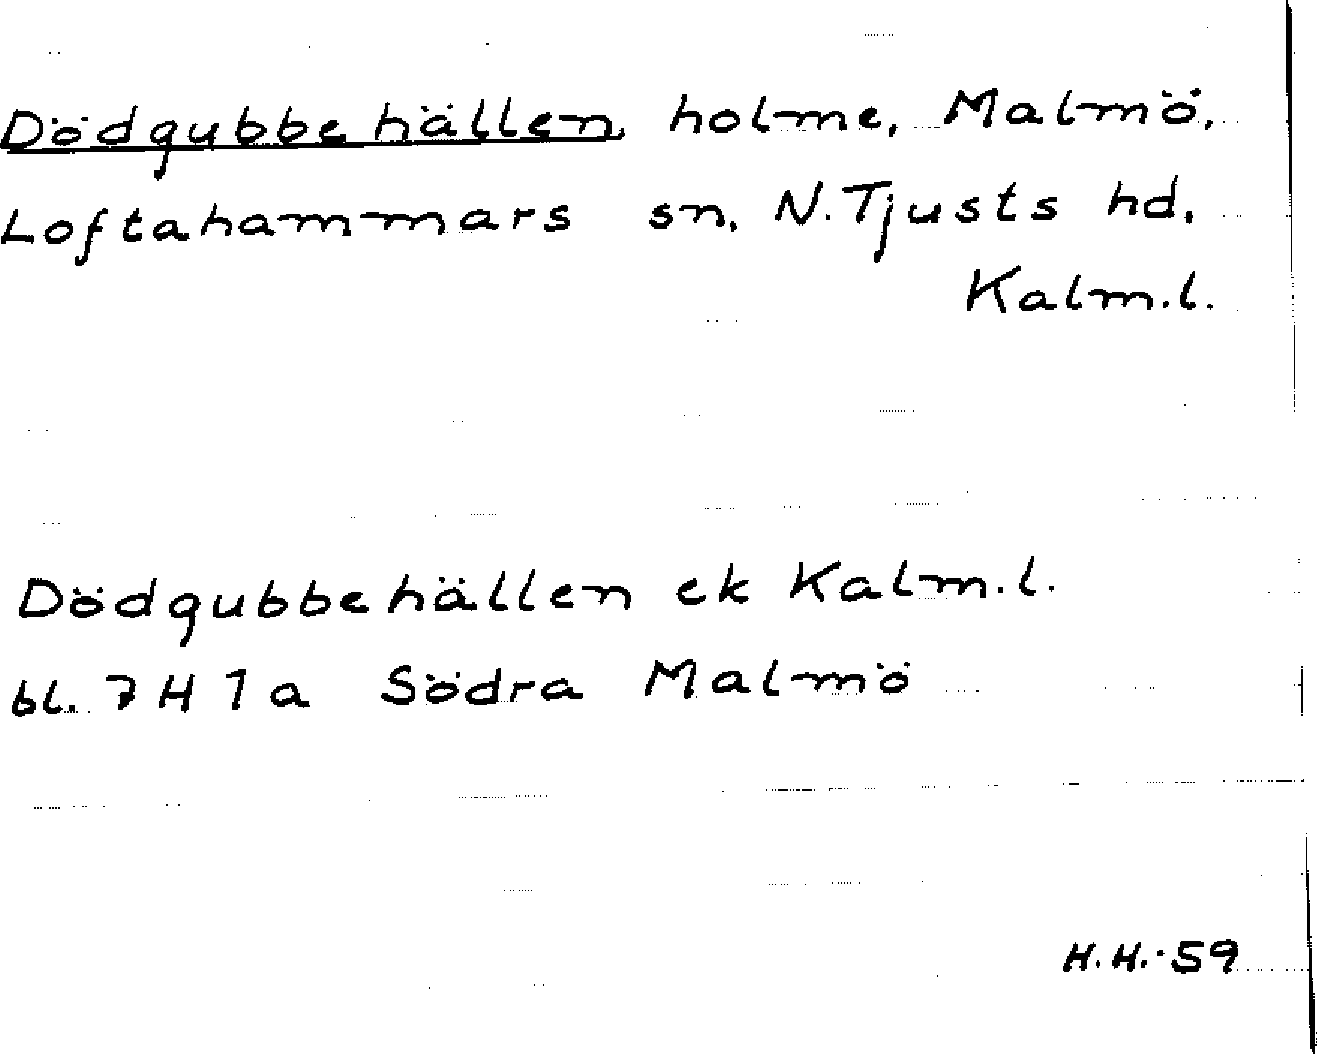 Dödgubbehällen, holme, Malmö,
Loftahammars sn, N. Tjusts hd,
Kalm.l.
Dödgubbehällen ek Kalm.l.
bl. 7H 1a Södra Malmö
H.H.·59